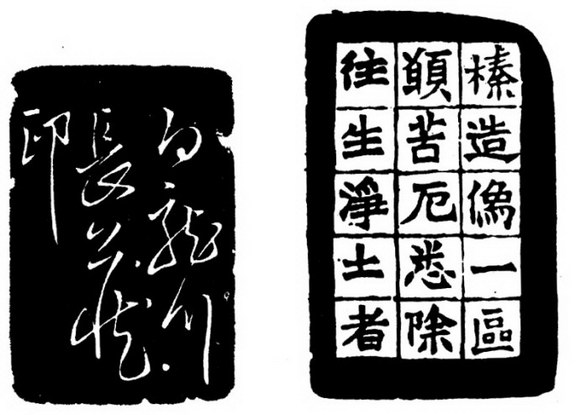 榛造像一區
願苦厄悉除
往生淨土者
白龍
長公
印